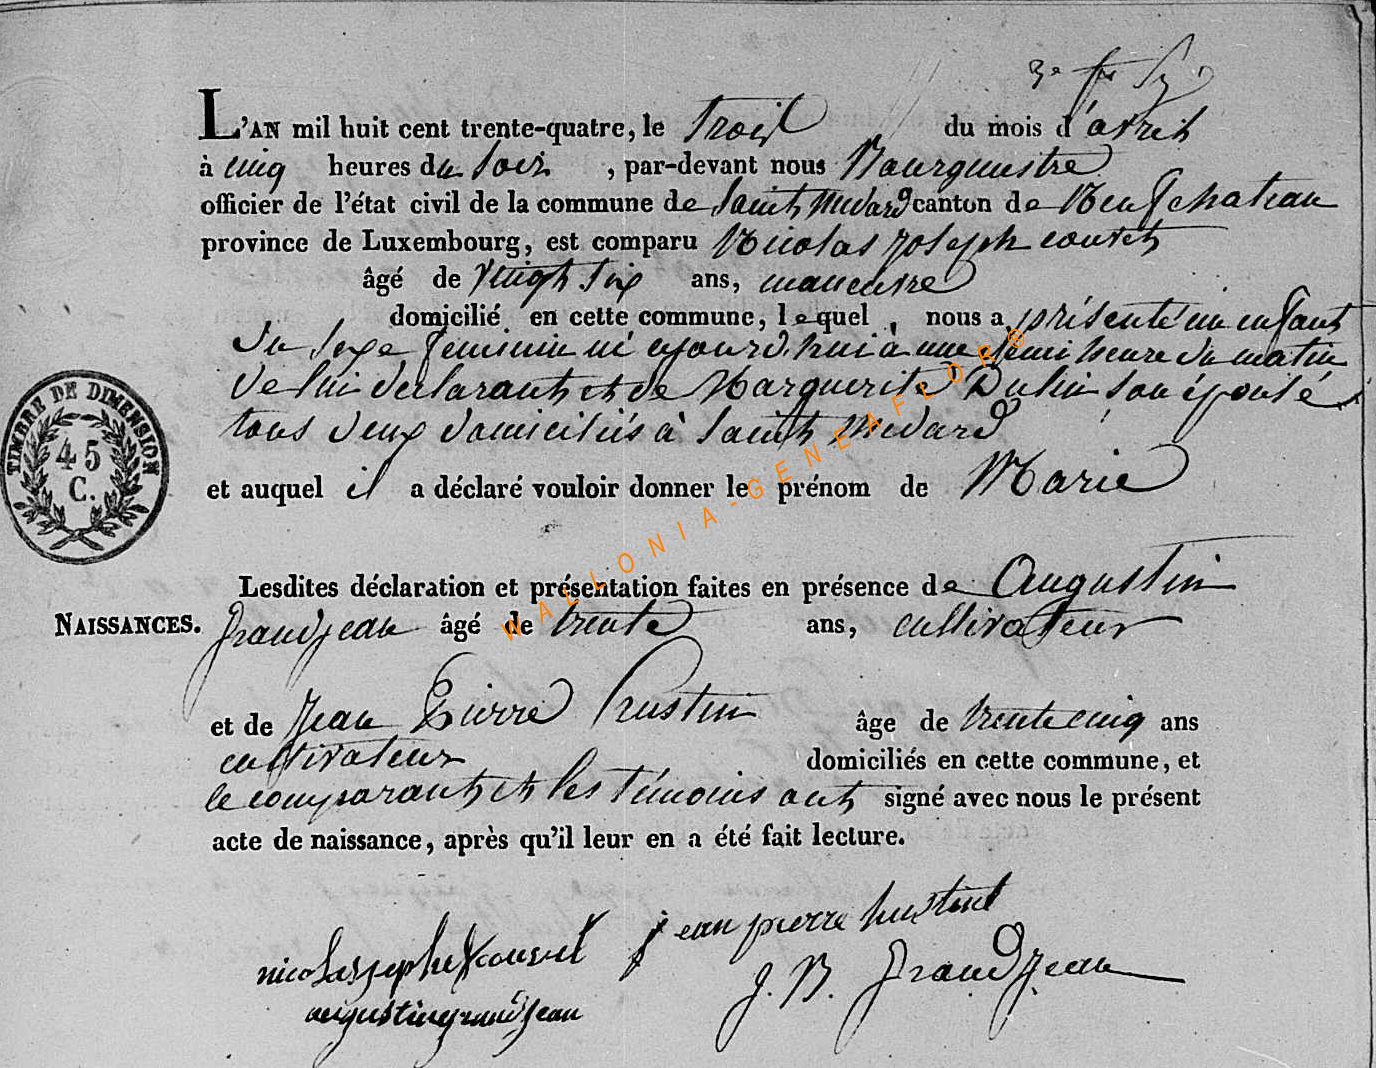 3e
L'AN mil huit cent trente-quatre, le trois du mois d'avril
à cinq heures du soir, par-devant nous Bourguestre
officier de l'état civil de la commune de Saint Médard canton de Neufchateau
province de Luxembourg, est comparu Nicolas Joseph
âgé de vingt six ans, maneuvre
domicilié en cette commune, lequel, nous a présenté un enfant
du sexe feminin né ajourd.hui à une demi heure du matin
de lui declarant et de Marguerite son épouse
tous deux domiciliés à Saint Medard
et auquel il a déclaré vouloir donner le prénom de Marie
Lesdites déclaration et présentation faites en présence de Augustin
NAISSANCES.
Grandjean âgé de trente ans, cultivateur
et de Jean Pierre Hustin âge de trente cinq ans
cultivateur domiciliés en cette commune, et
le comparant et les témoins ont signé avec nous le présent
acte de naissance, après qu'il leur en a été fait lecture.
jean pierre hustin
nicolas joseph
J. B. Grandjean
augustin grandjean
TIMBRE DE DIMENSION
45
C.
WALLONIA-GENEAFLORE®